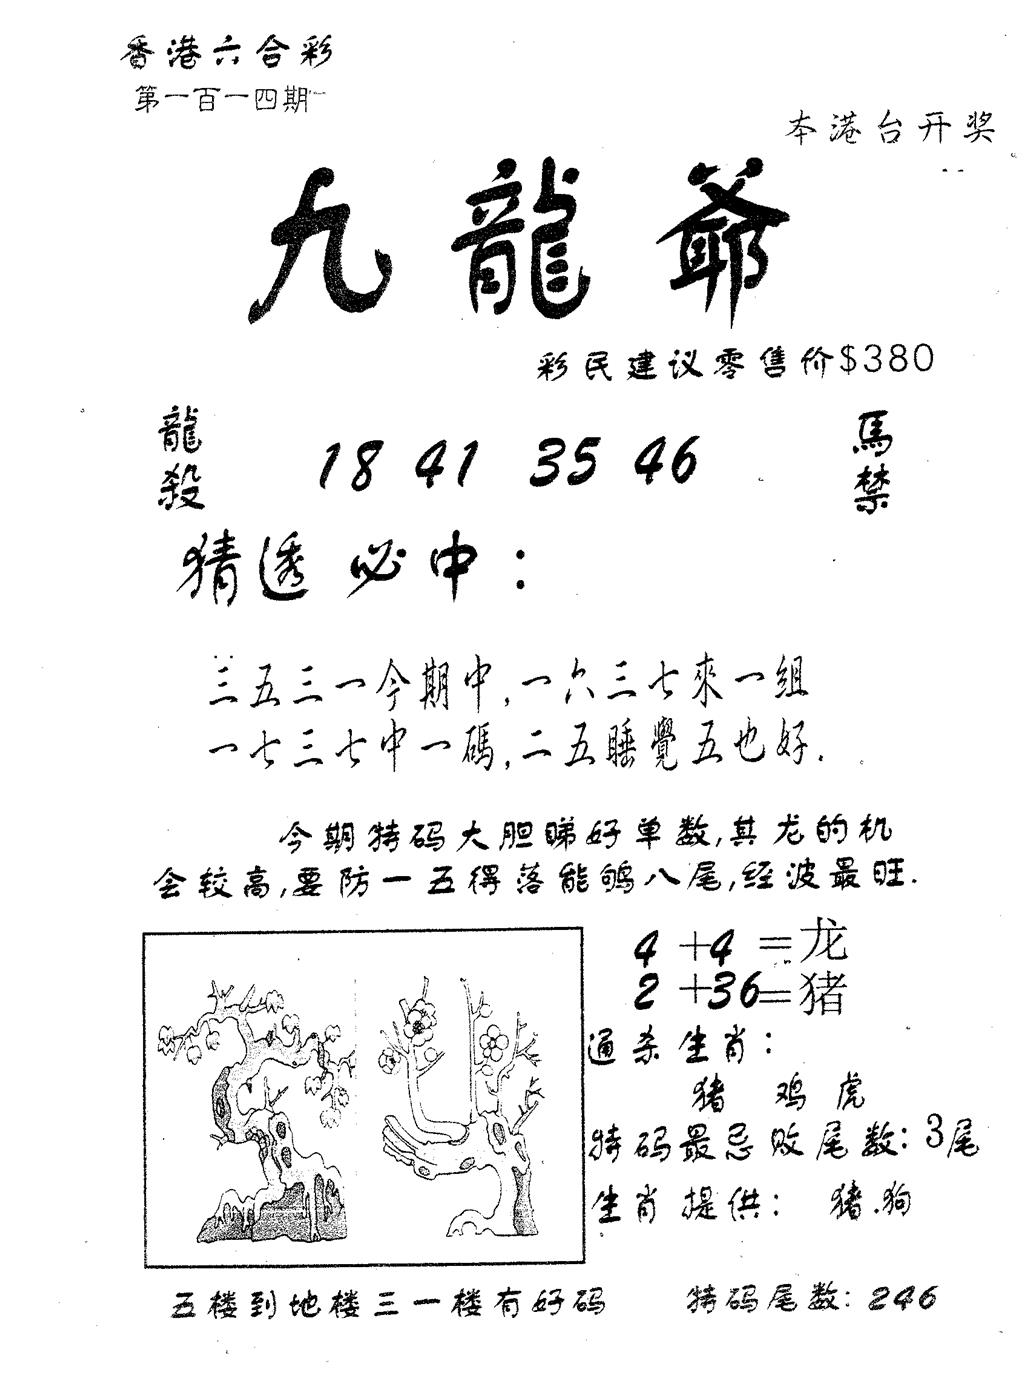 香港六合彩
第一百一四期
本港台开奖
九龍爺
彩民建议零售价$380
龍殺
18 41 35 46
馬禁
猜透必中：
三五三一今期中，一六三七來一组
一七三七中一碼，二五睡覺五也好．
今期特码大胆睇好单数，其龙的机
会较高，要防一五得落能鸲八尾，经波最旺．
4 +4 =龙
2 +36=猪
通杀生肖：
猪 鸡 虎
特码最忌败尾数：3尾
生肖提供： 猪．狗
五楼到地楼三一楼有好码 特码尾数：246